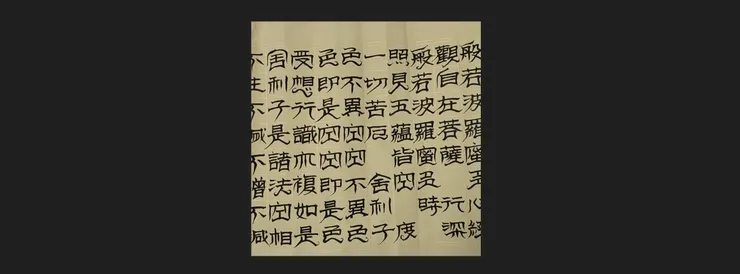 般若波羅蜜多心經
觀自在菩薩 行深
般若波羅蜜多時
照見五蘊皆空 度
一切苦厄 舍利子
色不異空空不異色
色即是空空即是色
受想行識亦複如是
舍利子是諸法空相
不生不滅不增不減